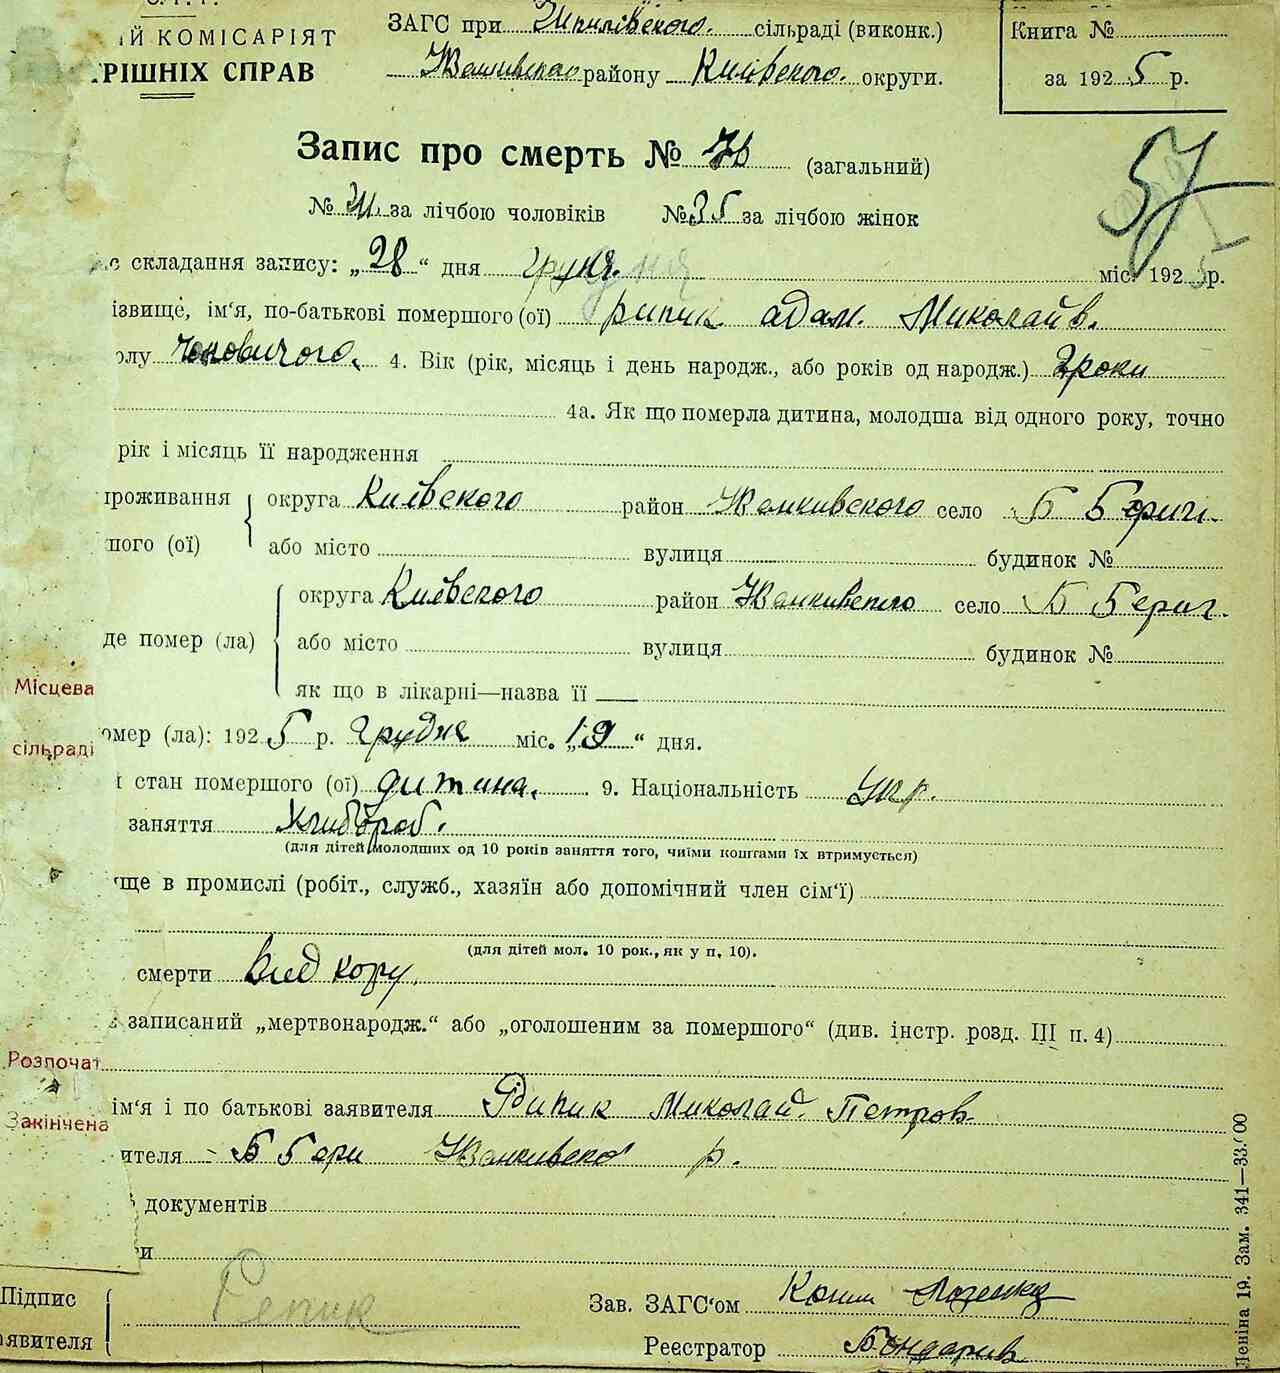 ИЙ КОМІСАРІЯТ
РІШНІХ СПРАВ
ЗАГС при сільраді (виконк.)
району Київского. округи.
Книга №
за 1925 р.
Запис про смерть № (загальний)
57
№ за лічбою чоловіків №35 за лічбою жінок
с складання запису: „28“ дня грудня міс. 1925р.
ізвище, ім‘я, по-батькові помершого (ої) рипик адам. Миколайв.
олу чоловичого. 4. Вік (рік, місяць і день народж., або років од народж.) 2роки
4а. Як що померла дитина, молодша від одного року, точно
рік і місяць її народження
проживання округа Київского район Иванкивского село Б Бериг.
шого (ої) або місто вулиця будинок №
округа Київского район Иванкивского село Б Бериг.
де помер (ла) або місто вулиця будинок №
як що в лікарні—назва її
Місцева
сільраді
омер (ла): 1925 р. грудня міс. „19“ дня.
і стан помершого (ої) дитина. 9. Національність укр.
заняття Хлибороб.
(для дітей молодших од 10 років заняття того, чиїми коштами їх втримується)
ище в промислі (робіт., служб., хазяїн або допомічний член сім‘ї)
(для дітей мол. 10 рок., як у п. 10).
смерти вид кору.
записаний „мертвонародж.“ або „оголошеним за помершого“ (див. інстр. розд. III п. 4)
Розпочат
Закінчена
ім‘я і по батькові заявителя Рипик Миколай. Петров.
ителя - Б Бери Иванкивско р.
документів
и
Підпис
аявителя
Репик
Зав. ЗАГС‘ом
Реестратор Бондарив
Леніна 19. Зам. 341—33.000